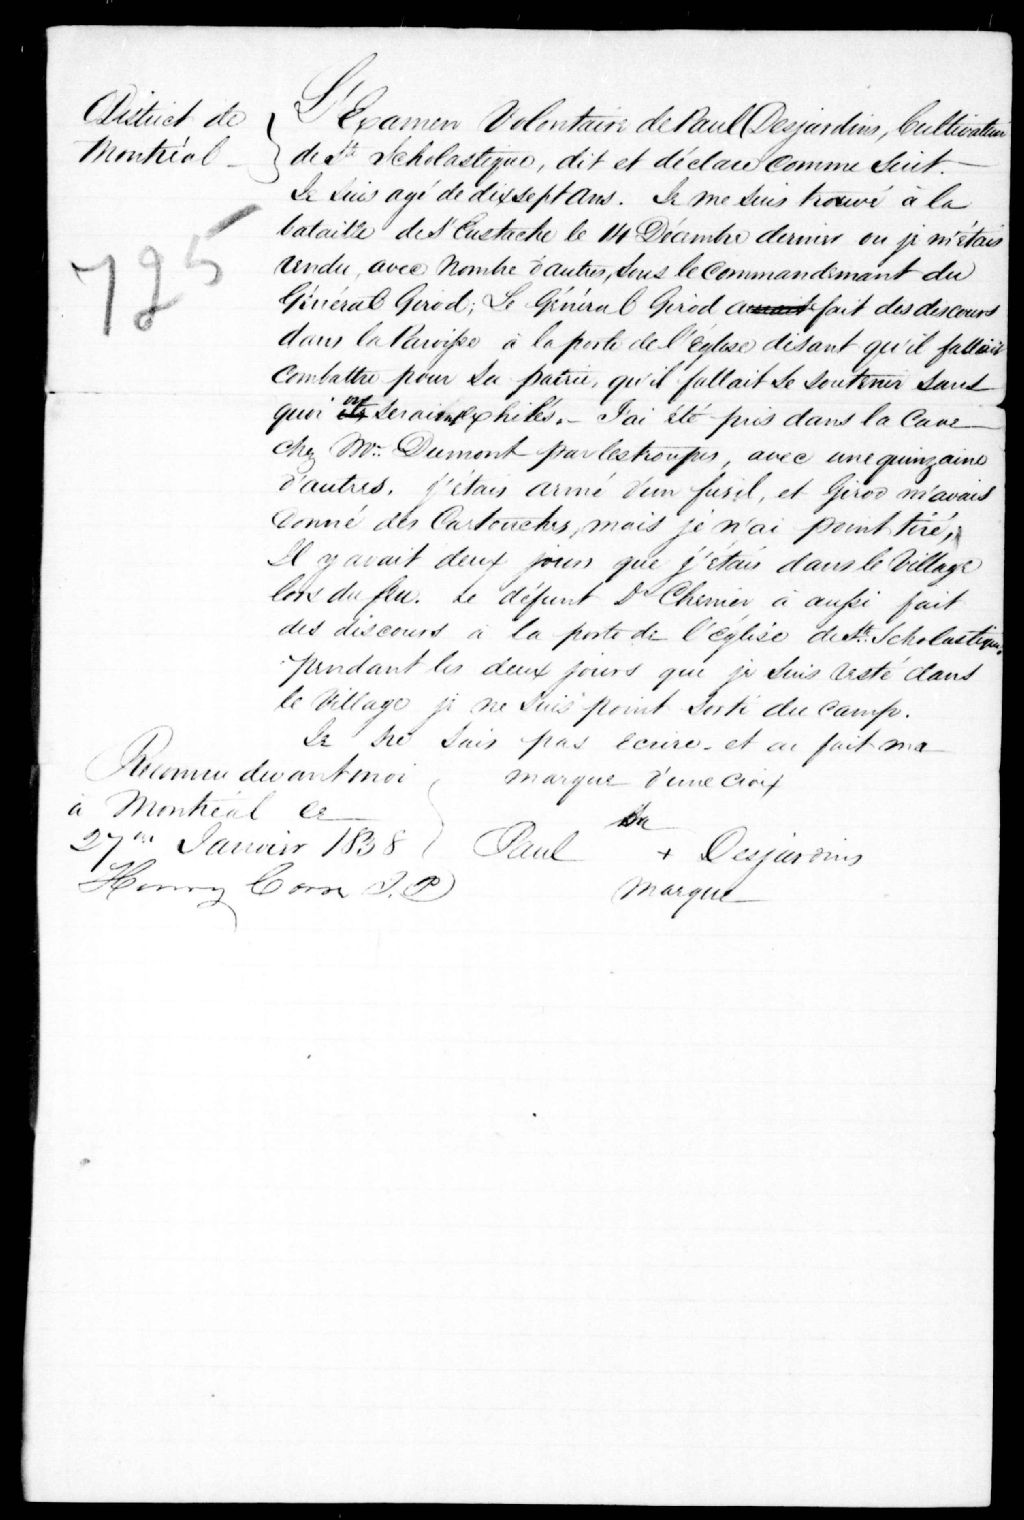 District de
Montréal
L'Examen Volontaire de Paul Desjardins, Cultivateur
de Ste Scholastique, dit et déclare comme suit.
Je suis agé de dixsept ans. Je me suis trouvé à la
bataille de St Eustache le 14 Décembre dernier ou je m'étais
rendu, avec nombre d'autres, sous le commandement du
Général Girod; Le Général Girod a fait des discours
dans la Paroisse à la porte de l'église disant qu'il fallait
combattre pour sa patrie, qu'il fallait se soutenir sans
quoi on serait exhilés. - J'ai été pris dans la cave
chez Mr. Dumont par les troupes, avec une quinzaine
d'autres. j'étais armé d'un fusil, et Girod m'avais
donné des Cartouches, mais je n'ai point tiré,
Il y avait deux jours que j'étais dans le Village
lors du feu. Le défunt Dr Chenier à aussi fait
des discours à la porte de l'église de Ste. Scholastique.
pendant les deux jours que je suis resté dans
le village je ne suis point sorti du camp.
Je ne sais pas ecrire - et ai fait ma
marque d'une croix
725
Reconnu devant moi
à Montréal ce
27me Janvier 1838
Henry Corse J.P
sa
Paul + Desjardins
marque